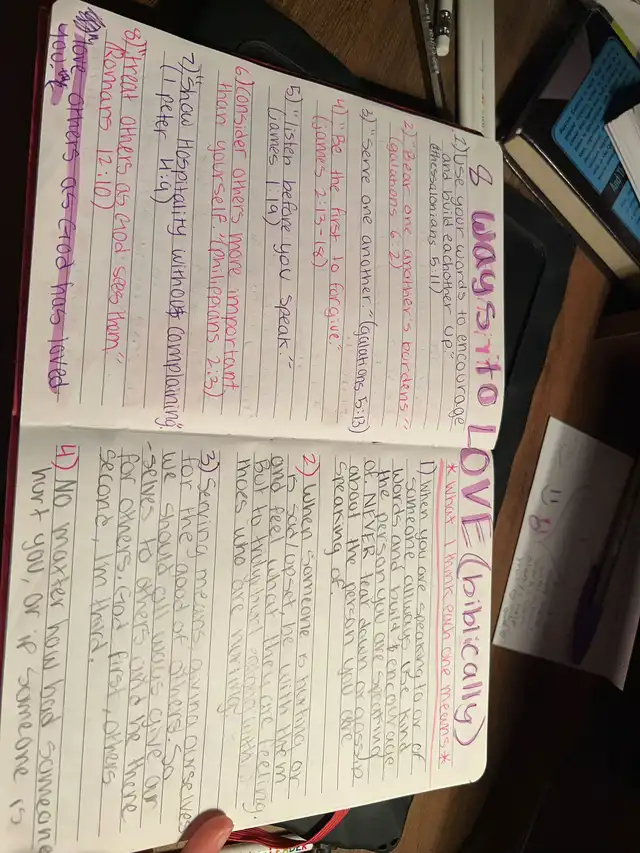 8 ways to LOVE (biblically)
1.) Use your words to encourage
and build eachother up."
(thessalonians 5:11)
2) "Bear one another's burdens."
(galations 6:2)
3) "Serve one another." (galations 5:13)
4) "Be the first to forgive."
(james 2:13-18)
5) "listen before you speak."
(james 1:19)
6) consider others more important
than yourself." (philippians 2:3)
7) "Show Hospitality without complaining"
(1 peter 4:9)
8) "treat others as God sees them"
(Romans 12:10)
love others as God has loved
you
* What I think each one means *
1) when you are speaking to or of
someone allways use kind
words and build & encourage
the person you are speaking
of. NEVER tear down or gossip
about the person you are
speaking of.
2) when someone is hurting or
is sad/upset be with them
and feel what they are feeling.
But to truly hurt with
those who are hurting
3) Serving means giving ourselves
for the good of others. So
we should all ways give our
-selves to others and be there
for others. God first, others
second, I'm third.
4) No matter how bad someone
hurt you, or if someone is